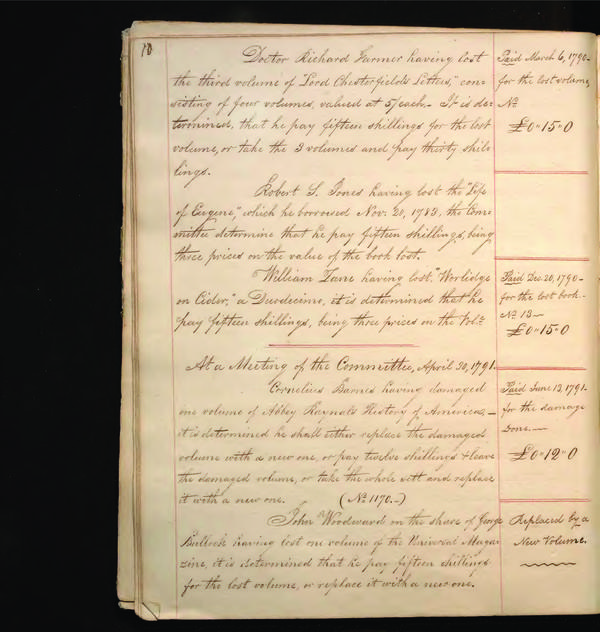 10
Doctor Richard Farmer having lost
the third volume of "Lord Chesterfield's Letters," con-
sisting of four volumes, valued at 5/ each.- It is de-
termined, that he pay fifteen shillings for the lost
volume, or take the 3 volumes and pay thirty shil-
lings.
Paid March 6, 1790-
for the lost volume,
No
£0"15"0
Robert S. Jones having lost the "Life
of Eugene," which he borrowed Nov. 20, 1783, the Com-
mittee determine that he pay fifteen shillings, being
three prices on the value of the book lost.
William Lane having lost, "Worlidge
on Cider," a Duodecimo, it is determined that he
pay fifteen shillings, being three prices on the Vol.
Paid Dec. 20, 1790-
for the lost book.
No 13-
£0"15"0
At a Meeting of the Committee, April 30, 1791.
Cornelius Barnes having damaged
one volume of Abbey Raynal's History of America,-
it is determined he shall either replace the damaged
volume with a new one, or pay twelve shillings & leave
the damaged volume, or take the whole sett and replace
it with a new one. (No 1170.-)
Paid June 13, 1791-
for the damage
done.-
£0"12"0
John Woodward on the share of George
Bullock having lost one volume of the Universal Maga-
zine, it is determined that he pay fifteen shillings
for the lost volume, or replace it with a new one.
Replaced by a
New Volume.